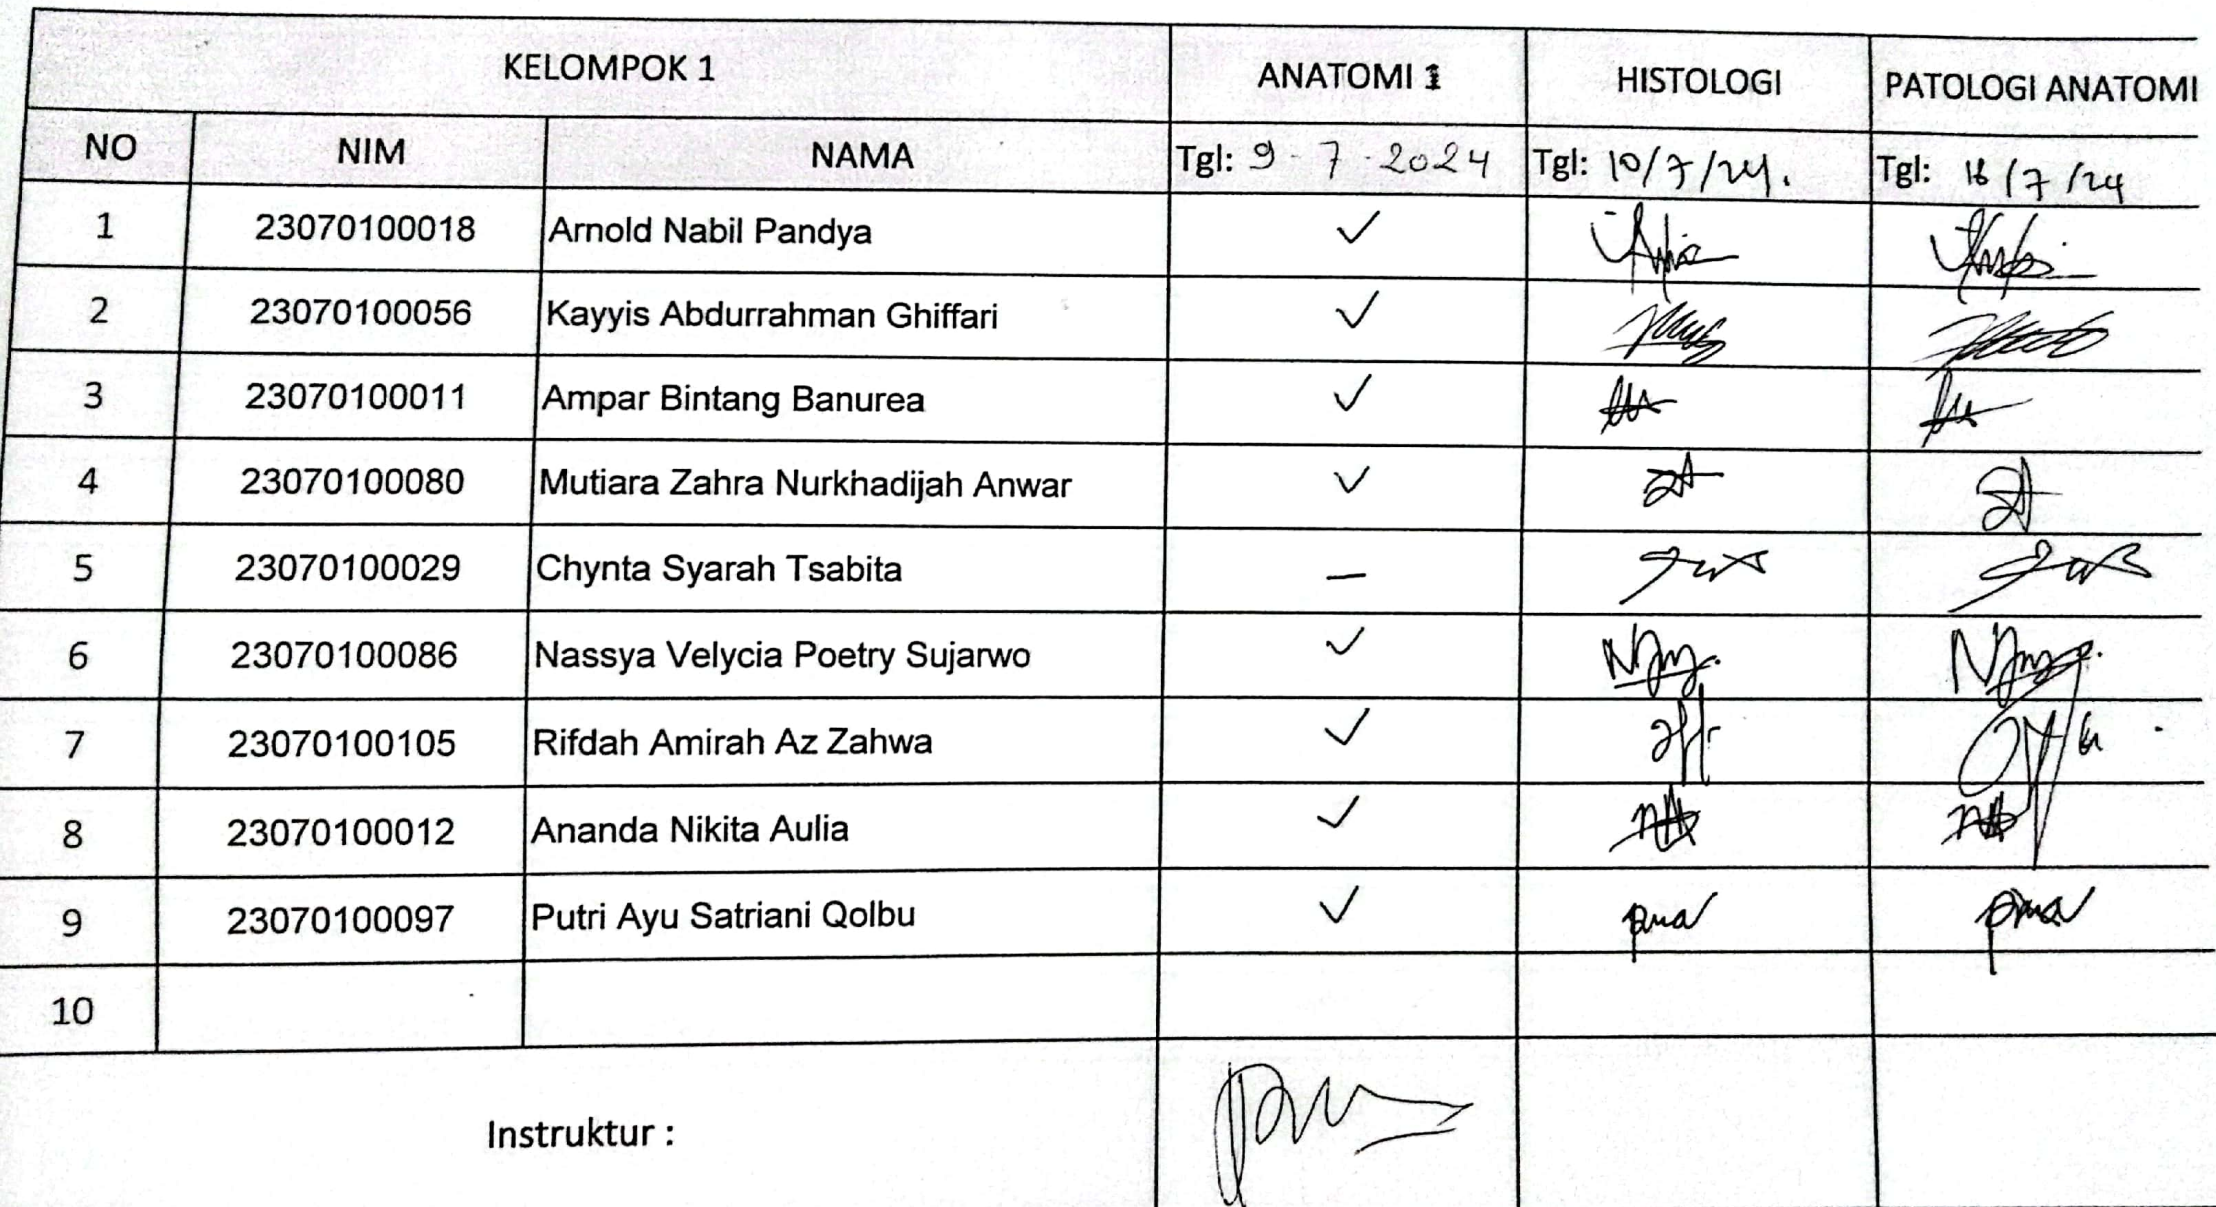 KELOMPOK 1 ANATOMI 1 HISTOLOGI PATOLOGI ANATOMI
NO NIM NAMA Tgl: 9-7-2024 Tgl: 10/7/24. Tgl: /7/24
1 23070100018 Arnold Nabil Pandya ✓
2 23070100056 Kayyis Abdurrahman Ghiffari ✓
3 23070100011 Ampar Bintang Banurea ✓
4 23070100080 Mutiara Zahra Nurkhadijah Anwar ✓
5 23070100029 Chynta Syarah Tsabita –
6 23070100086 Nassya Velycia Poetry Sujarwo ✓
7 23070100105 Rifdah Amirah Az Zahwa ✓
8 23070100012 Ananda Nikita Aulia ✓
9 23070100097 Putri Ayu Satriani Qolbu ✓
10
Instruktur :